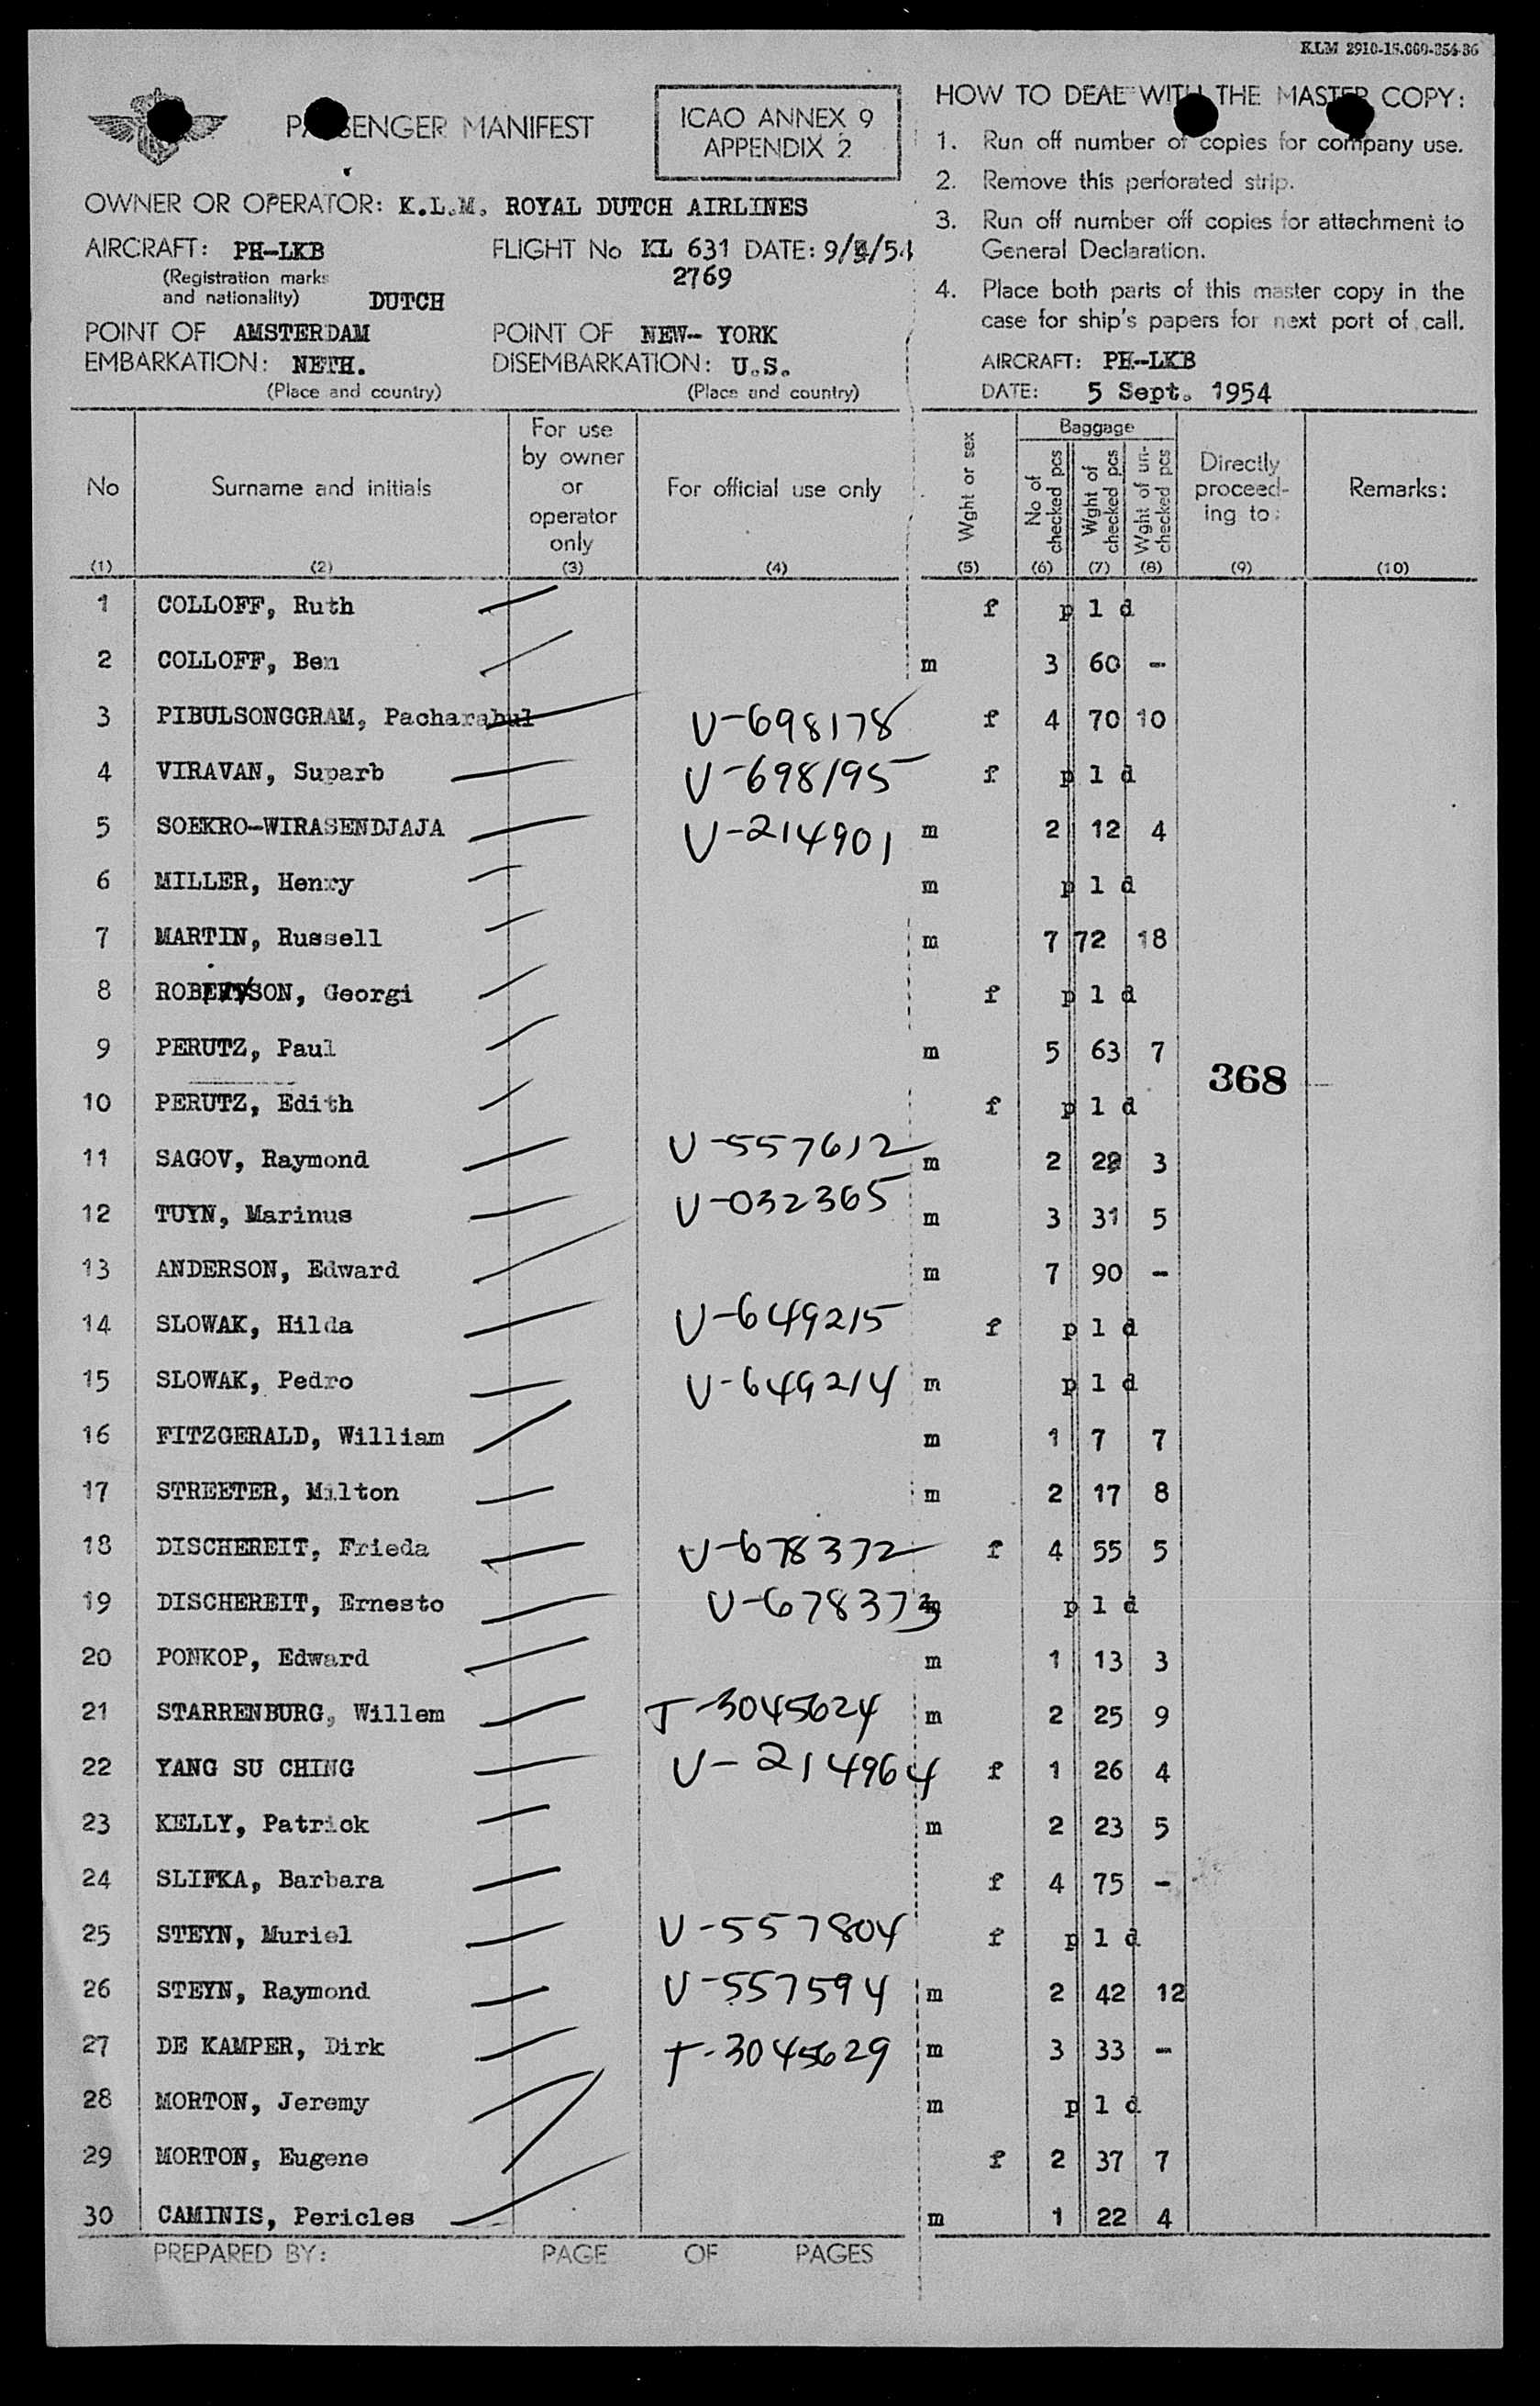 KLM 2910-15.000-354-36
PASSENGER MANIFEST
ICAO ANNEX 9
APPENDIX 2
OWNER OR OPERATOR: K.L.M. ROYAL DUTCH AIRLINES
AIRCRAFT: PH-LKB FLIGHT No KL 631 DATE: 9/ /54
(Registration marks
and nationality) DUTCH 2769
POINT OF AMSTERDAM POINT OF NEW- YORK
EMBARKATION: NETH. DISEMBARKATION: U.S.
(Place and country) (Place and country)
HOW TO DEAL WITH THE MASTER COPY:
1. Run off number of copies for company use.
2. Remove this perforated strip.
3. Run off number off copies for attachment to
General Declaration.
4. Place both parts of this master copy in the
case for ship's papers for next port of call.
AIRCRAFT: PH-LKB
DATE: 5 Sept. 1954
No
(1)
Surname and initials
(2)
For use
by owner
or
operator
only
(3)
For official use only
(4)
Wght or sex
(5)
Baggage
No of
checked pcs
(6)
Wght of
checked pcs
(7)
Wght of un-
checked pcs
(8)
Directly
proceed-
ing to:
(9)
Remarks:
(10)
1 COLLOFF, Ruth f p l d
2 COLLOFF, Ben m 3 60 -
3 PIBULSONGGRAM, Pacharabul V-698178 f 4 70 10
4 VIRAVAN, Suparb V-698195 f p l d
5 SOEKRO-WIRASENDJAJA V-214901 m 2 12 4
6 MILLER, Henry m p l d
7 MARTIN, Russell m 7 72 18
8 Georgi f p l d
9 PERUTZ, Paul m 5 63 7
368
10 PERUTZ, Edith f p l d
11 SAGOV, Raymond V-557612 m 2 3
12 TUYN, Marinus V-032365 m 3 31 5
13 ANDERSON, Edward m 7 90 -
14 SLOWAK, Hilda V-649215 f p l d
15 SLOWAK, Pedro V-649214 m p l d
16 FITZGERALD, William m 1 7 7
17 STREETER, Milton m 2 17 8
18 DISCHEREIT, Frieda V-678372 f 4 55 5
19 DISCHEREIT, Ernesto V-678373 m p l d
20 PONKOP, Edward m 1 13 3
21 STARRENBURG, Willem T-3045624 m 2 25 9
22 YANG SU CHING V-214964 f 1 26 4
23 KELLY, Patrick m 2 23 5
24 SLIFKA, Barbara f 4 75 -
25 STEYN, Muriel V-557804 f p l d
26 STEYN, Raymond V-557594 m 2 42 12
27 DE KAMPER, Dirk T-3045629 m 3 33 -
28 MORTON, Jeremy m p l d
29 MORTON, Eugene f 2 37 7
30 CAMINIS, Pericles m 1 22 4
PREPARED BY: PAGE OF PAGES